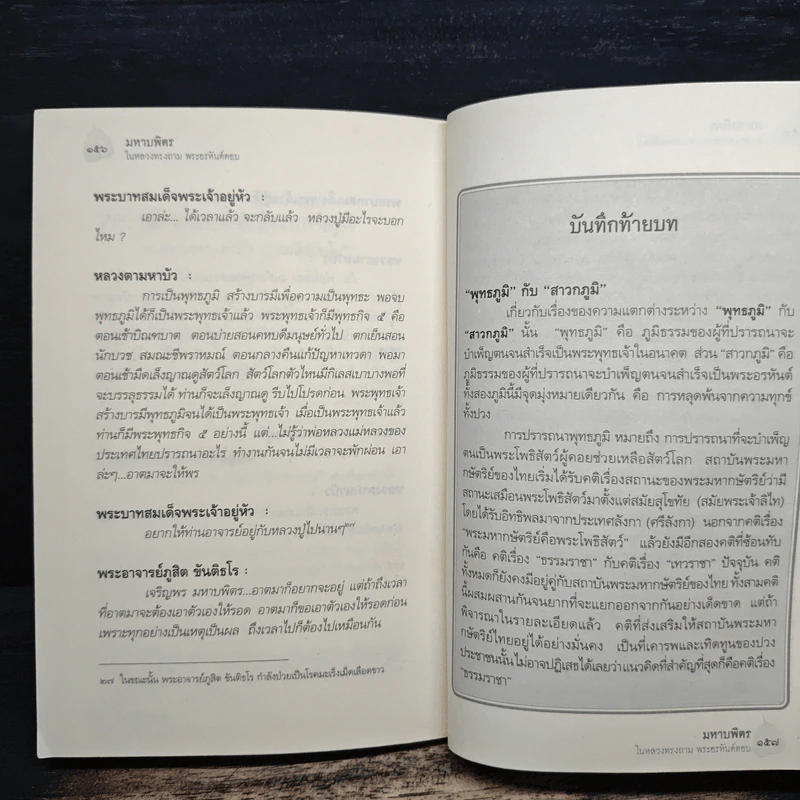 ๑๕๖
มหาบพิตร
ในหลวงทรงถาม พระอรหันต์ตอบ
พระบาทสมเด็จพระเจ้าอยู่หัว :
เอาล่ะ... ได้เวลาแล้ว จะกลับแล้ว หลวงปู่มีอะไรจะบอก
ไหม ?
หลวงตามหาบัว :
การเป็นพุทธภูมิ สร้างบารมีเพื่อความเป็นพุทธะ พอจบ
พุทธภูมิได้ก็เป็นพระพุทธเจ้าแล้ว พระพุทธเจ้าก็มีพุทธกิจ ๕ คือ
ตอนเช้าบิณฑบาต ตอนบ่ายสอนคหบดีมนุษย์ทั่วไป ตกเย็นสอน
นักบวช สมณะชีพราหมณ์ ตอนกลางคืนแก้ปัญหาเทวดา พอมา
ตอนเช้ามืดเล็งญาณดูสัตว์โลก สัตว์โลกตัวไหนมีกิเลสเบาบางพอที่
จะบรรลุธรรมได้ ท่านก็จะเล็งญาณดู รีบไปโปรดก่อน พระพุทธเจ้า
สร้างบารมีพุทธภูมิจนได้เป็นพระพุทธเจ้า เมื่อเป็นพระพุทธเจ้าแล้ว
ท่านก็มีพระพุทธกิจ ๕ อย่างนี้ แต่...ไม่รู้ว่าพ่อหลวงแม่หลวงของ
ประเทศไทยปรารถนาอะไร ทำงานกันจนไม่มีเวลาจะพักผ่อน เอา
ล่ะๆ...อาตมาจะให้พร
พระบาทสมเด็จพระเจ้าอยู่หัว :
อยากให้ท่านอาจารย์อยู่กับหลวงปู่ไปนานๆ๒๗
พระอาจารย์ภูสิต ขันติธโร :
เจริญพร มหาบพิตร...อาตมาก็อยากจะอยู่ แต่ถ้าถึงเวลา
ที่อาตมาจะต้องเอาตัวเองให้รอด อาตมาก็ขอเอาตัวเองให้รอดก่อน
เพราะทุกอย่างเป็นเหตุเป็นผล ถึงเวลาไปก็ต้องไปเหมือนกัน
๒๗ ในขณะนั้น พระอาจารย์ภูสิต ขันติธโร กำลังป่วยเป็นโรคมะเร็งเม็ดเลือดขาว
บันทึกท้ายบท
“พุทธภูมิ” กับ “สาวกภูมิ”
เกี่ยวกับเรื่องของความแตกต่างระหว่าง “พุทธภูมิ” กับ
“สาวกภูมิ” นั้น “พุทธภูมิ” คือ ภูมิธรรมของผู้ที่ปรารถนาจะ
บำเพ็ญตนจนสำเร็จเป็นพระพุทธเจ้าในอนาคต ส่วน “สาวกภูมิ” คือ
ภูมิธรรมของผู้ที่ปรารถนาจะบำเพ็ญตนจนสำเร็จเป็นพระอรหันต์
ทั้งสองภูมินี้มีจุดมุ่งหมายเดียวกัน คือ การหลุดพ้นจากความทุกข์
ทั้งปวง
การปรารถนาพุทธภูมิ หมายถึง การปรารถนาที่จะบำเพ็ญ
ตนเป็นพระโพธิสัตว์ผู้คอยช่วยเหลือสัตว์โลก สถาบันพระมหา
กษัตริย์ของไทยเริ่มได้รับคติเรื่องสถานะของพระมหากษัตริย์ว่ามี
สถานะเสมือนพระโพธิสัตว์มาตั้งแต่สมัยสุโขทัย (สมัยพระเจ้าลิไท)
โดยได้รับอิทธิพลมาจากประเทศลังกา (ศรีลังกา) นอกจากคติเรื่อง
“พระมหากษัตริย์คือพระโพธิสัตว์” แล้วยังมีอีกสองคติที่ซ้อนทับ
กันคือ คติเรื่อง “ธรรมราชา” กับคติเรื่อง “เทวราชา” ปัจจุบัน คติ
ทั้งหมดก็ยังคงมีอยู่คู่กับสถาบันพระมหากษัตริย์ของไทย ทั้งสามคติ
นี้ผสมผสานกันจนยากที่จะแยกออกจากกันอย่างเด็ดขาด แต่ถ้า
พิจารณาในรายละเอียดแล้ว คติที่ส่งเสริมให้สถาบันพระมหา
กษัตริย์ไทยอยู่ได้อย่างมั่นคง เป็นที่เคารพและเทิดทูนของปวง
ประชาชนนั้น ไม่อาจปฏิเสธได้เลยว่าแนวคิดที่สำคัญที่สุดก็คือคติเรื่อง
“ธรรมราชา”
มหาบพิตร
ในหลวงทรงถาม พระอรหันต์ตอบ
๑๕๗